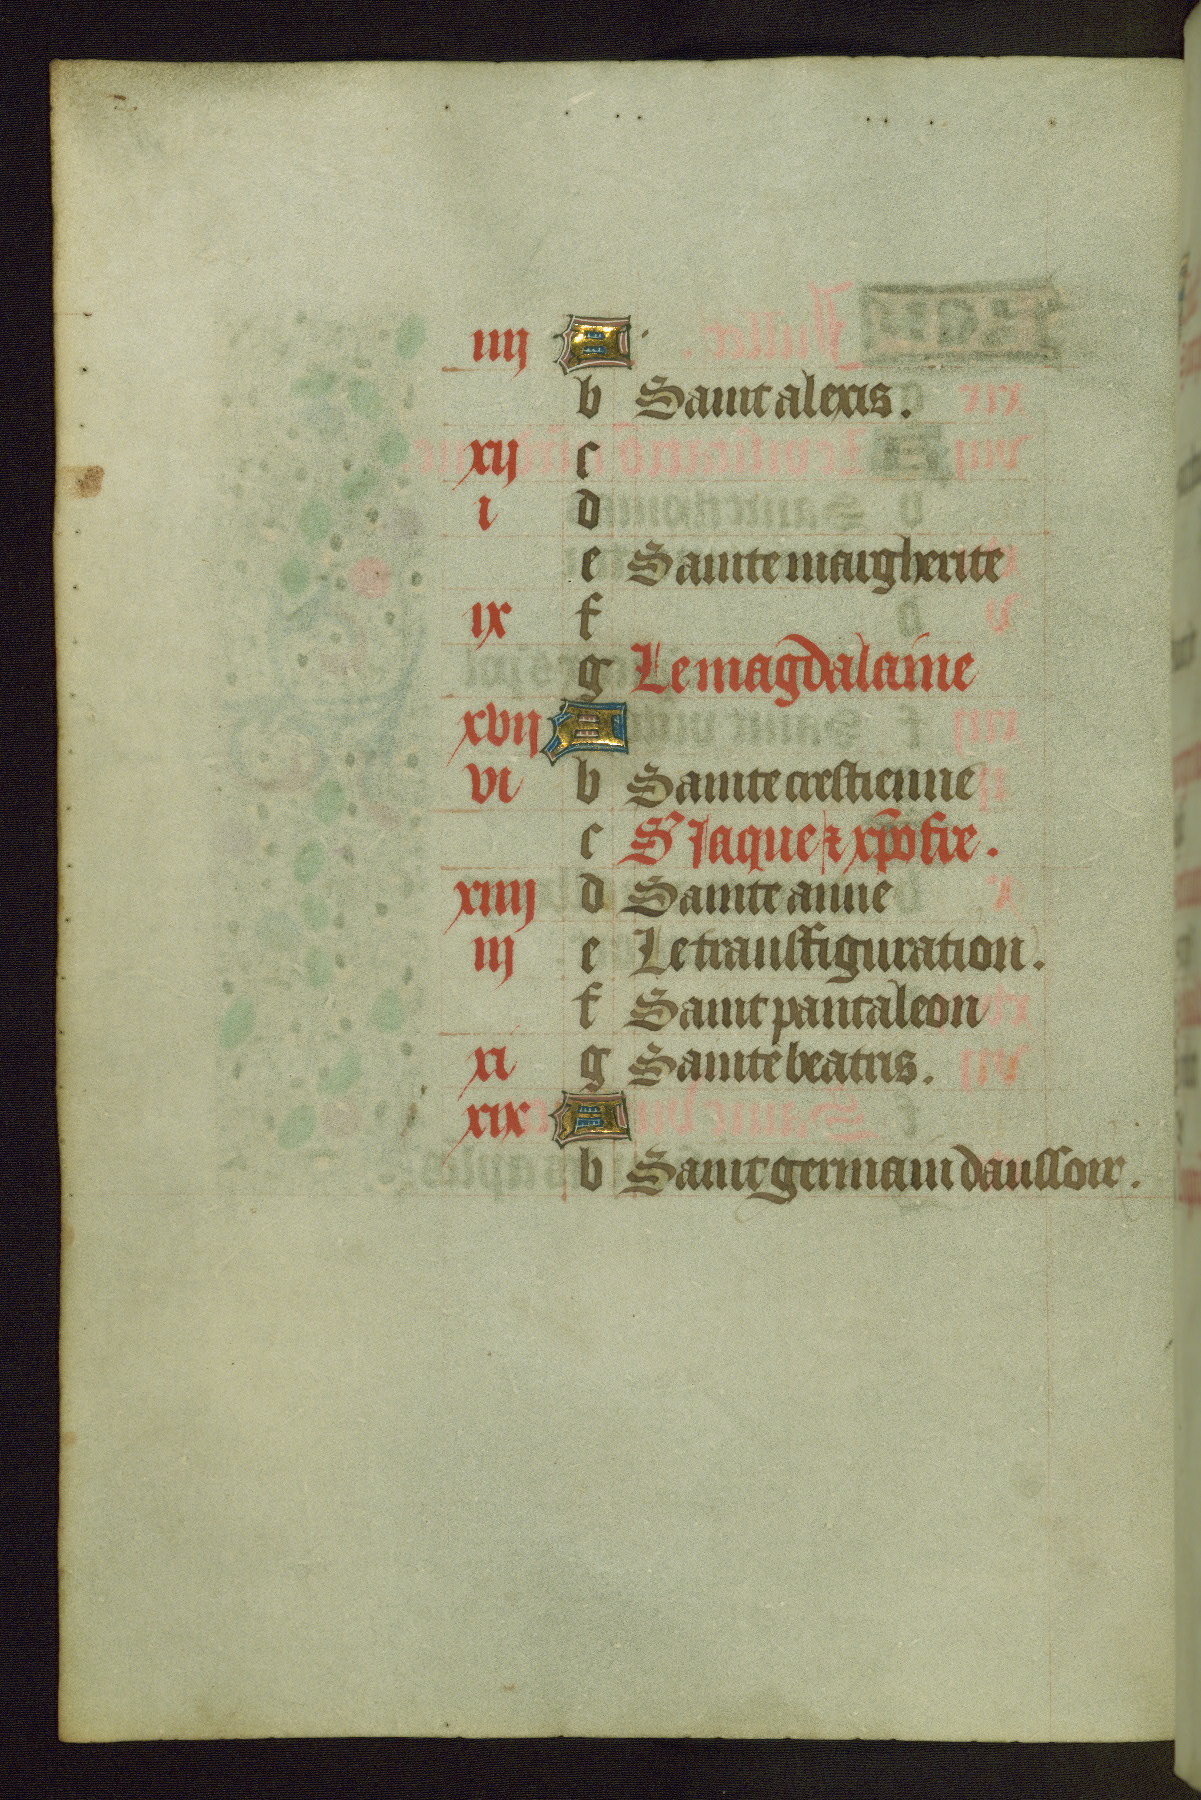 iiij A
b Saint alexis.
xij c
i d
e Sainte margherite
ix f
g Le magdalaine
xvij A
vi b Sainte crestienne
c St Jaque & xp̄ofre.
xiiij d Sainte anne
iij e Le transffiguration.
f Saint pantaleon
xi g Sainte beatris.
xix A
b Saint germain daussoir.